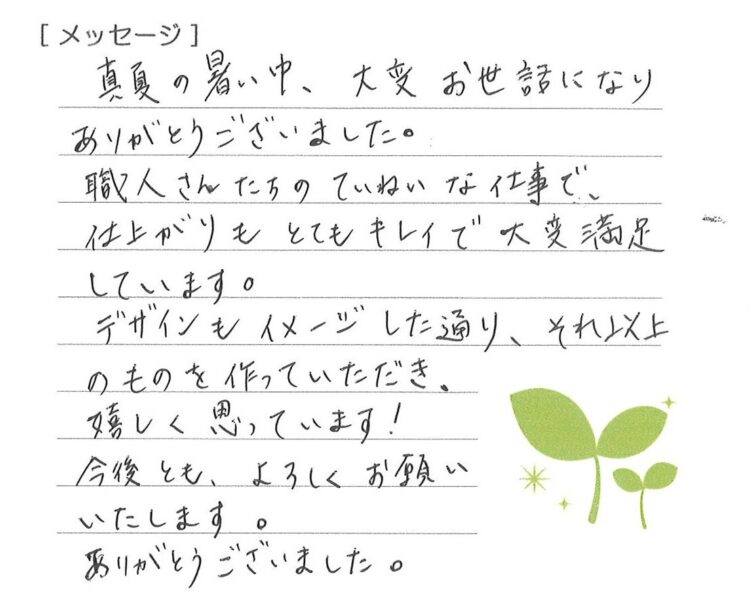 [メッセージ]
真夏の暑い中、大変お世話になり
ありがとうございました。
職人さんたちのていねいな仕事で、
仕上がりもとてもキレイで大変満足
しています。
デザインもイメージした通り、それ以上
のものを作っていただき、
嬉しく思っています!
今後とも、よろしくお願い
いたします。
ありがとうございました。